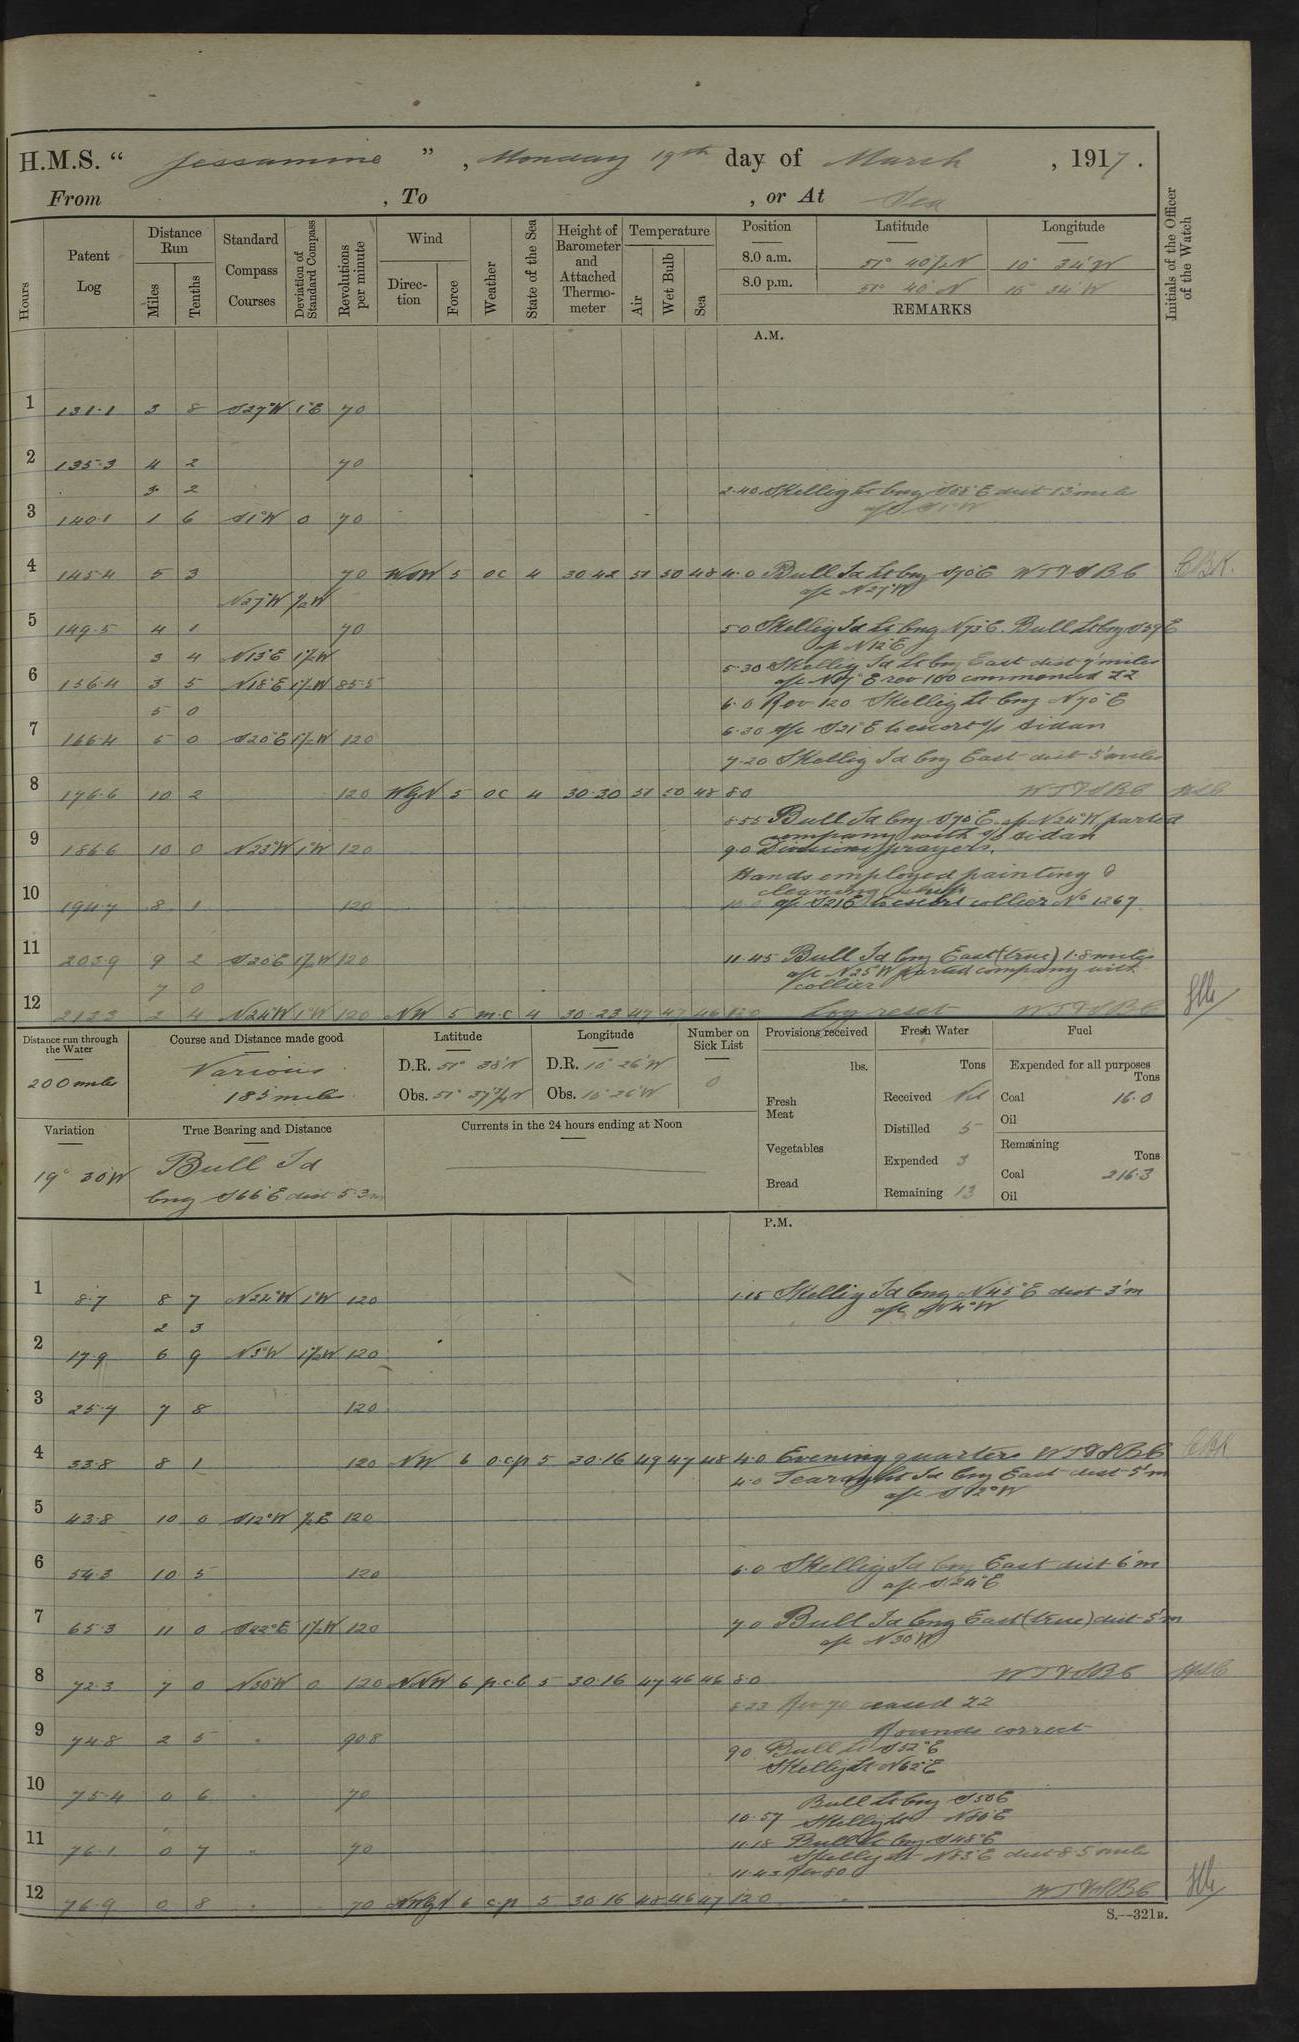 H.M.S. “ Jessamine ” , Monday 19th day of March , 1917.
From , To , or At Sea
Hours
Patent Log
Distance Run
Miles
Tenths
Standard Compass Courses
Deviation of Standard Compass
Revolutions per minute
Wind
Direction
Force
Weather
State of the Sea
Height of Barometer and Attached Thermometer
Temperature
Air
Wet Bulb
Sea
Position Latitude Longitude
8.0 a.m. 51° 40½'N 10° 34'W
8.0 p.m. 51° 40'N 10° 34'W
REMARKS
Initials of the Officer of the Watch
A.M.
1 131.1 3 8 S27°W 1°E 70
2 135.3 4 2 70
3 2 2.40 Skellig Lt brng S58°E dist 13 mile
3 140.1 1 6 S1°W 0 70 a/c S1°W
4 145.4 5 3 70 WSW 5 oc 4 30.42 51 50 48 4.0 Bull Id Lt brng S70°E WTVSBC
N27°W ½W a/c N27°W
5 149.5 4 1 70 5.0 Skellig Id Lt brng N73°E. Bull Lt brng S39E
a/c N12°E
3 4 N13°E 1½W 5.30 Skellig Id Lt brng East dist 7 miles
6 156.4 3 5 N18°E 1½W 85.5 rev 100 commenced ZZ
6.0 Rev 120 Skellig Lt brng N70°E
5 0
7 166.4 5 0 S20°E 1½W 120 6.30 a/c S21°E to escort s/s Sidan
7.20 Skellig Id brng East dist 5 miles
8 176.6 10 2 120 WbyN 5 oc 4 30.30 51 50 48 8.0 WTVSBC
8.55 Bull Id brng S70°E a/c N24°W parted
company with s/s Sidan
9 186.6 10 0 N23°W 1°W 120 9.0 Divisions prayers.
Hands employed painting &
cleaning ship
10 194.7 8 1 120 10.0 a/c S21E to escort collier No 1267
11 203.9 9 2 S20E 1½W 120 11.45 Bull Id brng East (true) 1.8 miles
a/c N25°W parted company with
collier
7 0
12 212.3 2 4 N24°W 1°W 120 NW 5 m.c 4 30.23 47 47 46 12.0 Log reset WTVSBC
Distance run through the Water
200 miles
Course and Distance made good
Various
185 miles
Latitude
D.R. 51° 38'N
Obs. 51° 37½'N
Longitude
D.R. 10° 26'W
Obs. 10° 26'W
Number on Sick List
0
Provisions received
lbs.
Fresh Meat
Vegetables
Bread
Fresh Water
Tons
Received Nil
Distilled 5
Expended 3
Remaining 13
Fuel
Expended for all purposes
Tons
Coal 16.0
Oil
Remaining
Tons
Coal 216.3
Oil
Variation
19° 30'W
True Bearing and Distance
Bull Id
brng S66°E dist 5.3m
Currents in the 24 hours ending at Noon
P.M.
1 8.7 8 7 N24°W 1°W 120 1.15 Skellig Id brng N45°E dist 3'm
a/c N4°W
2 3
2 17.9 6 9 N3°W 1½W 120
3 25.7 7 8 120
4 33.8 8 1 120 NW 6 o.c.p 5 30.16 49 47 48 4.0 Evening quarters WTVSBC
4.0 Tearaght Id brng East dist 5'm
a/c S12°W
5 43.8 10 0 S12°W ½E 120
6 54.3 10 5 120 6.0 Skellig Id brng East dist 6'm
a/c S24°E
7 65.3 11 0 S22°E 1½W 120 7.0 Bull Id brng East (true) dist 5'm
a/c N30W
8 72.3 7 0 N30°W 0 120 NNW 6 p.c.b 5 30.16 47 46 46 8.0 WTVSBC
8.23 Rev 70 ceased ZZ
Rounds correct
9 74.8 2 5 " 90.8 9.0 Bull Lt S52°E
Skellig Lt N62°E
10 75.4 0 6 " 70
Bull Lt brng S50E
10.57 Skellig Lt N80°E
11 76.1 0 7 " 70 11.18 Bull Lt brng S48°E
Skellig Lt N83°E dist 8.5 miles
11.43 Rev 80
12 76.9 0 8 " 70 NWbyN 6 c.p 5 30.16 48 46 47 12.0 WTVSBC
S.—321B.